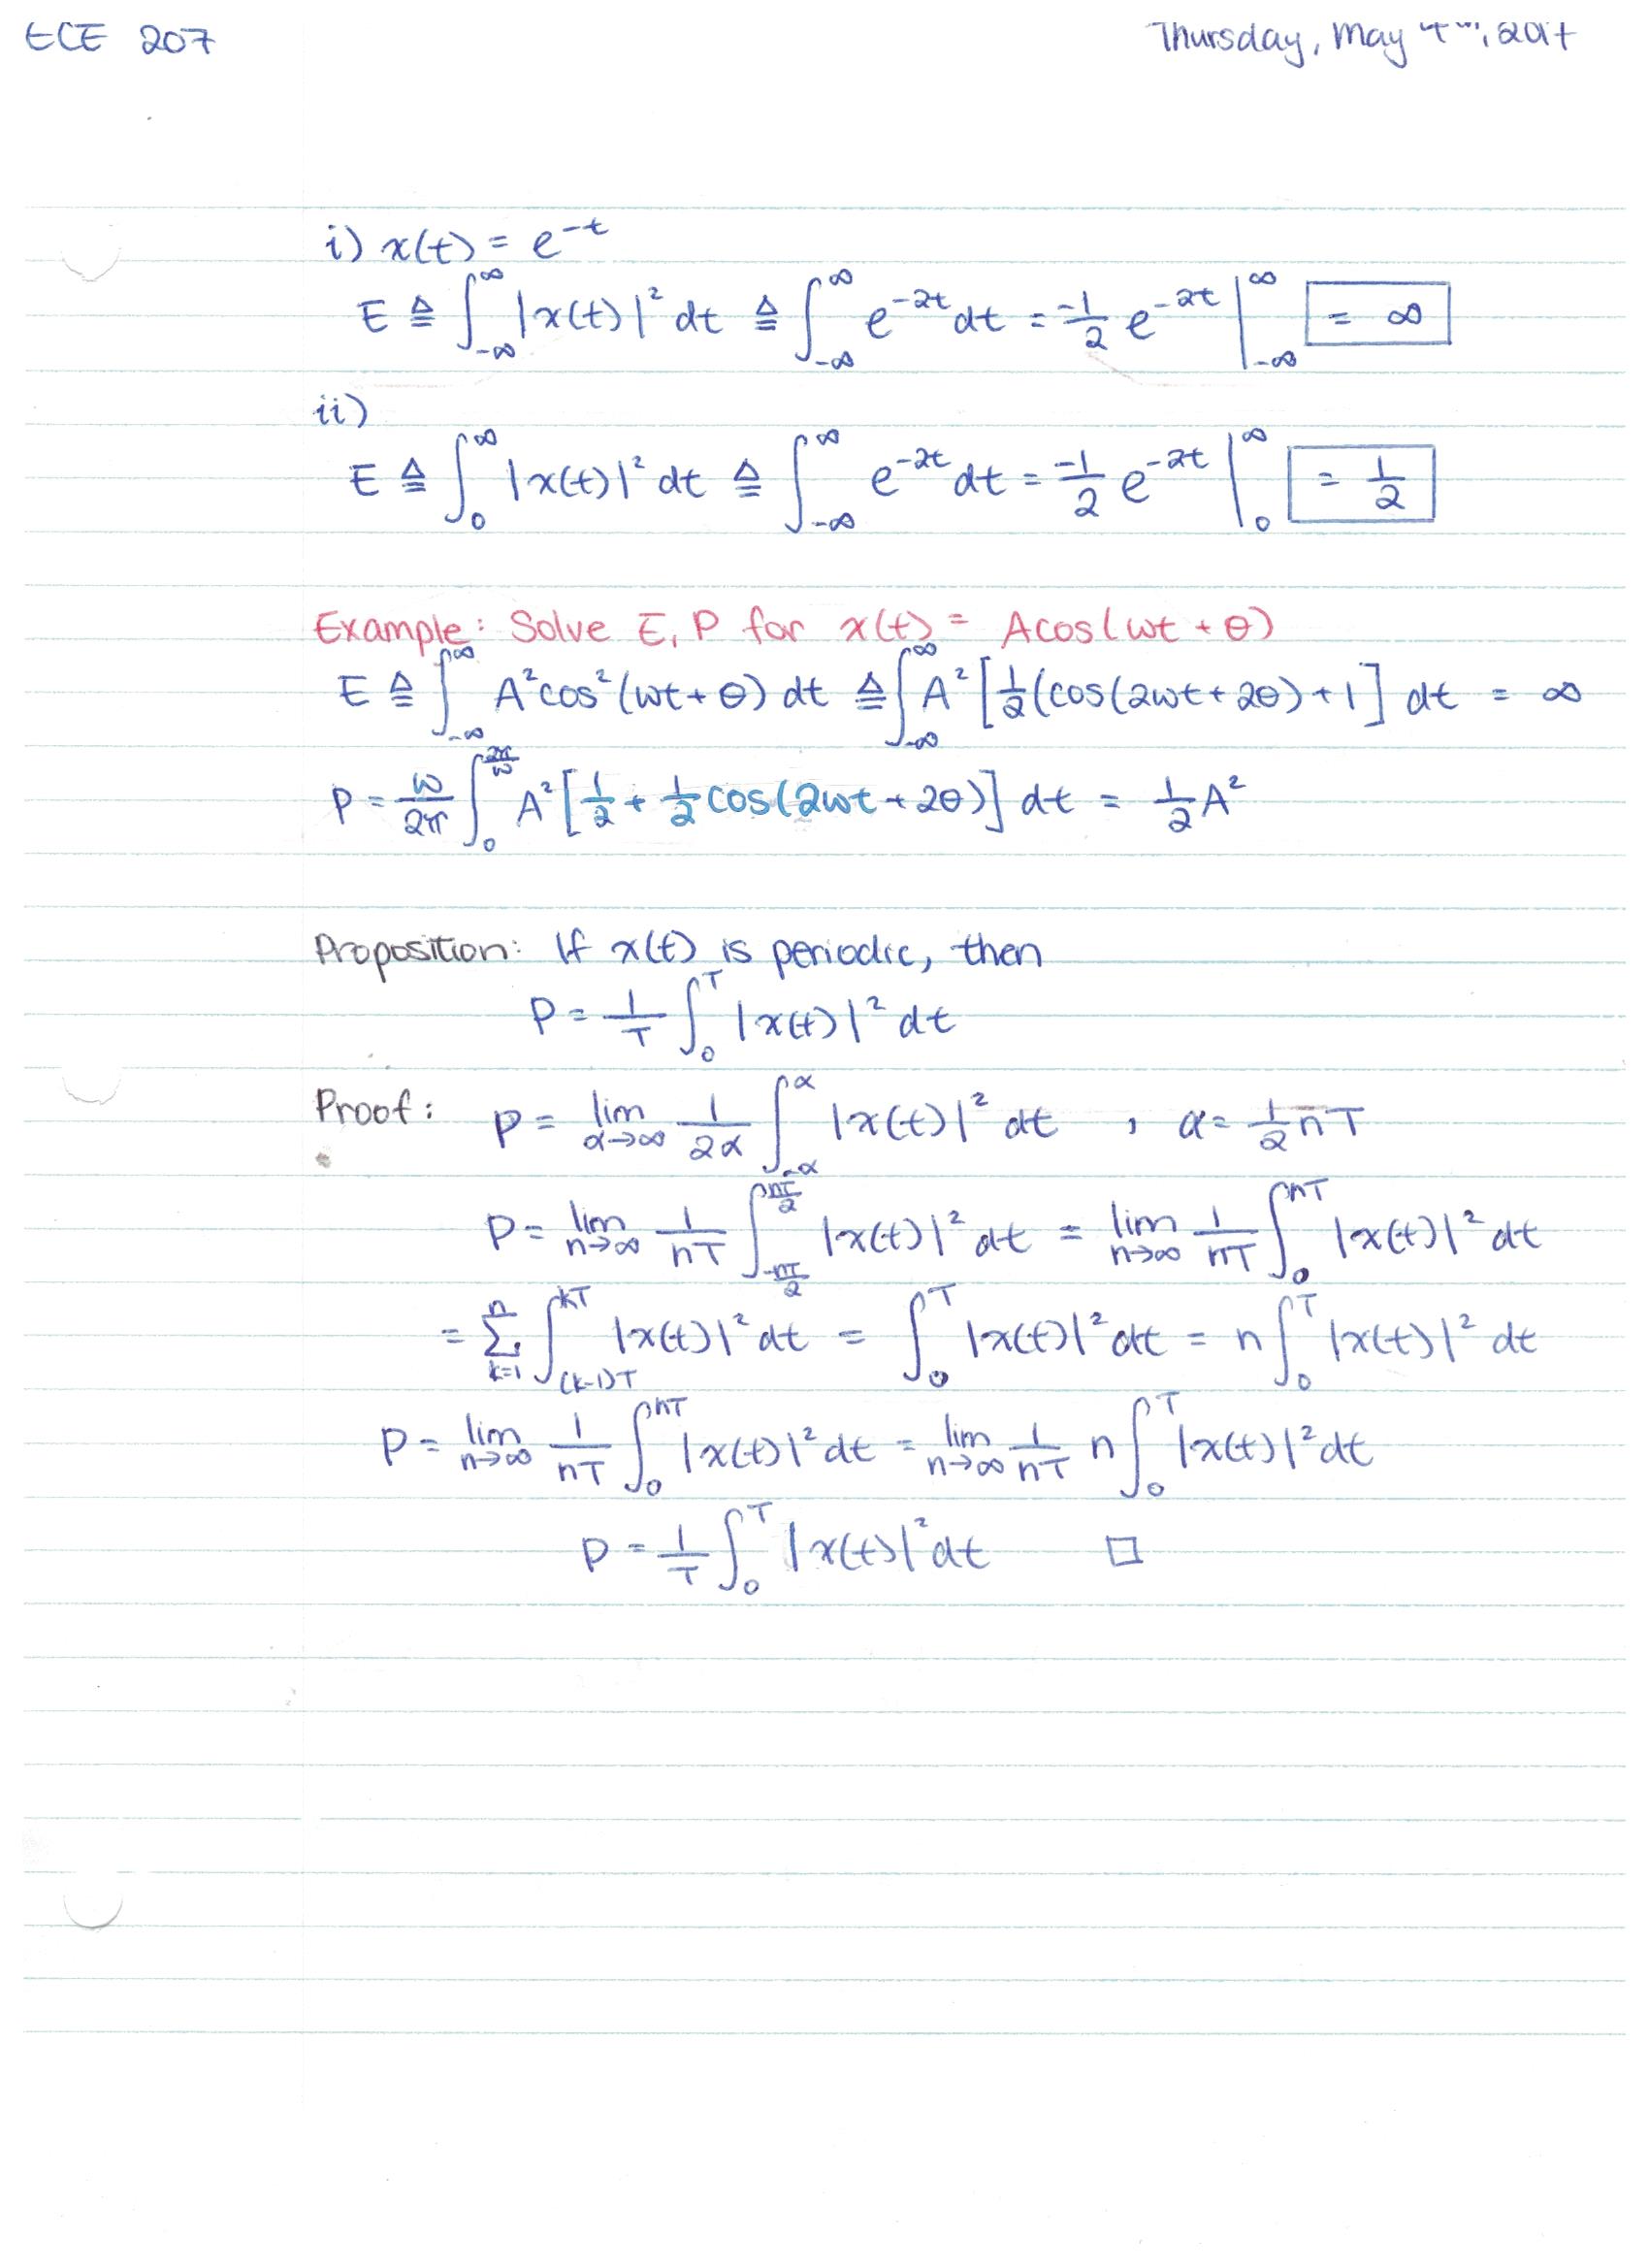 ECE 207
Thursday, May 4th, 2017
i) x(t) = e^{-t}
E ≜ ∫_{-∞}^{∞} |x(t)|² dt ≜ ∫_{-∞}^{∞} e^{-2t} dt = -1/2 e^{-2t} |_{-∞}^{∞} = ∞
ii)
E ≜ ∫_{0}^{∞} |x(t)|² dt ≜ ∫_{-∞}^{∞} e^{-2t} dt = -1/2 e^{-2t} |_{0}^{∞} = 1/2
Example: Solve E, P for x(t) = Acos(ωt + θ)
E ≜ ∫_{-∞}^{∞} A²cos²(ωt + θ) dt ≜ ∫_{-∞}^{∞} A² [1/2(cos(2ωt + 2θ) + 1] dt = ∞
P = ω/2π ∫_{0}^{2π/ω} A² [1/2 + 1/2 cos(2ωt + 2θ)] dt = 1/2 A²
Proposition: If x(t) is periodic, then
P = 1/T ∫_{0}^{T} |x(t)|² dt
Proof: P = lim_{α→∞} 1/2α ∫_{-α}^{α} |x(t)|² dt , α = 1/2 nT
P = lim_{n→∞} 1/nT ∫_{-nT/2}^{nT/2} |x(t)|² dt = lim_{n→∞} 1/nT ∫_{0}^{nT} |x(t)|² dt
= Σ_{k=1}^{n} ∫_{(k-1)T}^{kT} |x(t)|² dt = ∫_{0}^{T} |x(t)|² dt = n ∫_{0}^{T} |x(t)|² dt
P = lim_{n→∞} 1/nT ∫_{0}^{nT} |x(t)|² dt = lim_{n→∞} 1/nT n ∫_{0}^{T} |x(t)|² dt
P = 1/T ∫_{0}^{T} |x(t)|² dt □